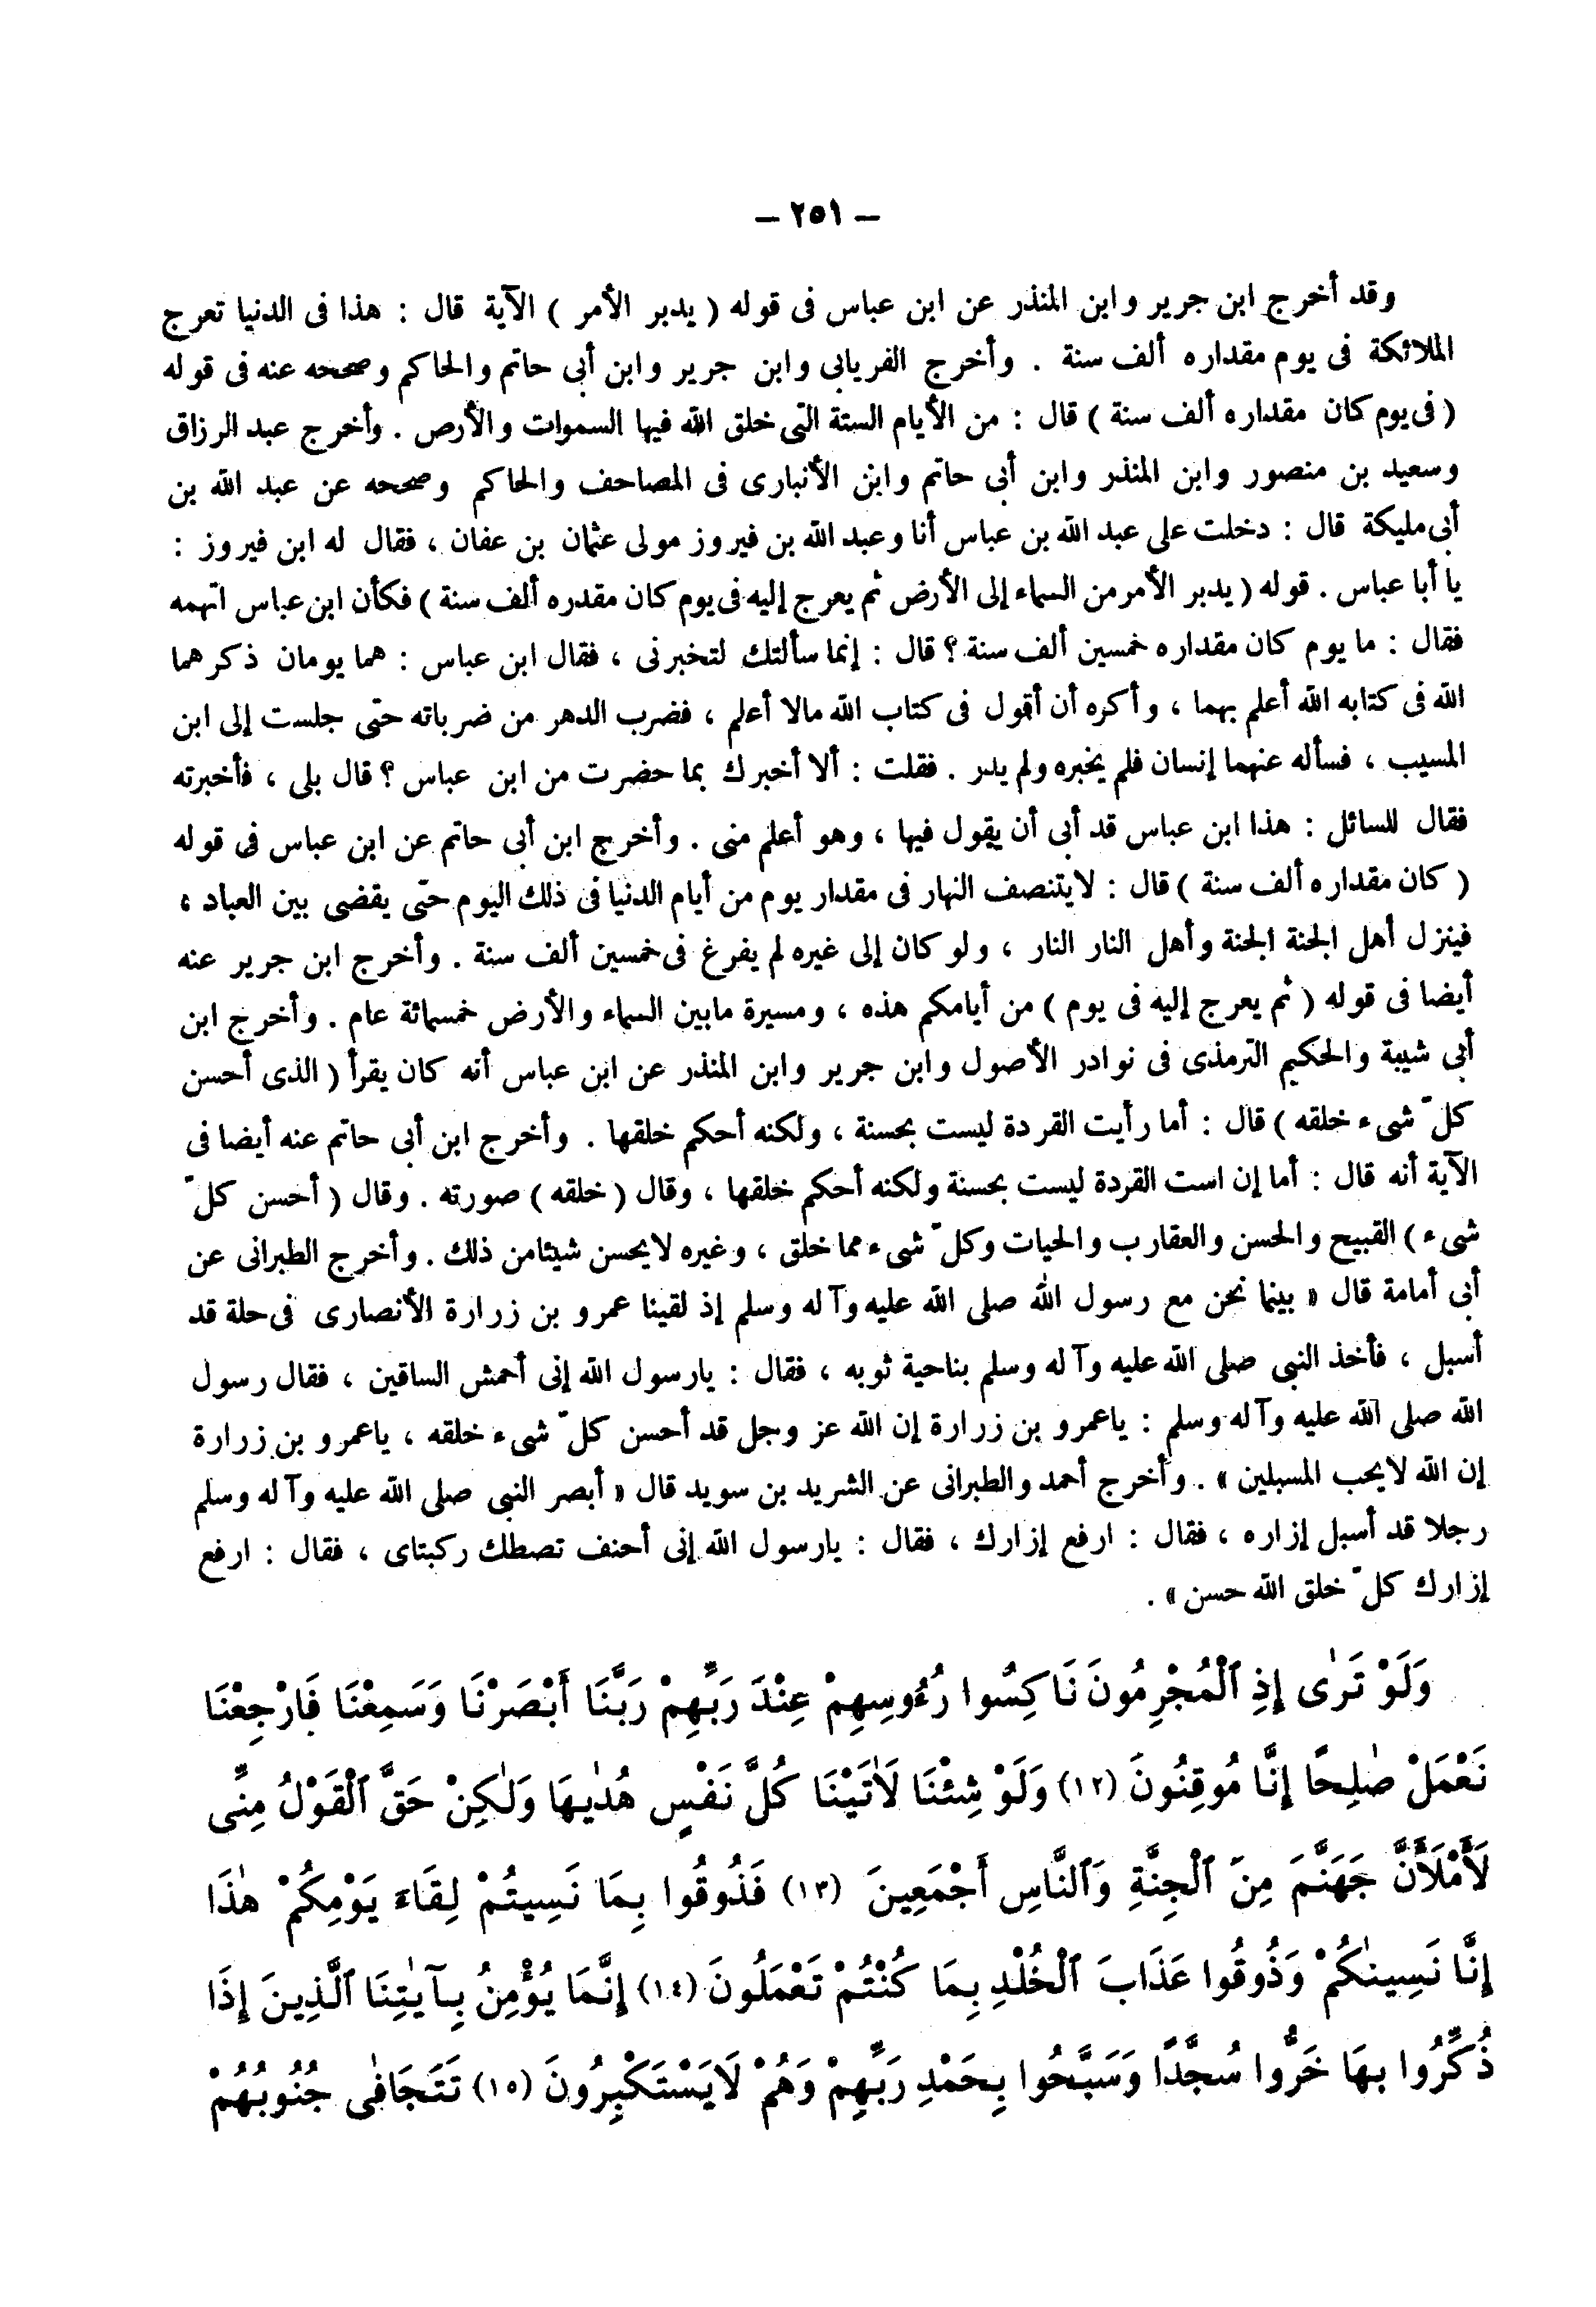 — ٢٥١ —
وقد أخرج ابن جرير وابن المنذر عن ابن عباس فى قوله ( يدبر الأمر ) الآية قال : هذا فى الدنيا تعرج
الملائكة فى يوم مقداره ألف سنة . وأخرج الفريابى وابن جرير وابن أبى حاتم والحاكم وصححه عنه فى قوله
( فى يوم كان مقداره ألف سنة ) قال : من الأيام الستة التى خلق الله فيها السموات والأرض . وأخرج عبد الرزاق
وسعيد بن منصور وابن المنذر وابن أبى حاتم وابن الأنبارى فى المصاحف والحاكم وصححه عن عبد الله بن
أبى مليكة قال : دخلت على عبد الله بن عباس أنا وعبد الله بن فيروز مولى عثمان بن عفان ، فقال له ابن فيروز :
يا أبا عباس . قوله ( يدبر الأمر من السماء إلى الأرض ثم يعرج إليه فى يوم كان مقدره ألف سنة ) فكأن ابن عباس اتهمه
فقال : ما يوم كان مقداره خمسين ألف سنة ؟ قال : إنما سألتك لتخبرنى ، فقال ابن عباس : هما يومان ذكرهما
الله فى كتابه الله أعلم بهما ، وأكره أن أقول فى كتاب الله مالا أعلم ، فضرب الدهر من ضرباته حتى جلست إلى ابن
المسيب ، فسأله عنهما إنسان فلم يخبره ولم يدر . فقلت : ألا أخبرك بما حضرت من ابن عباس ؟ قال بلى ، فأخبرته
فقال للسائل : هذا ابن عباس قد أبى أن يقول فيها ، وهو أعلم منى . وأخرج ابن أبى حاتم عن ابن عباس فى قوله
( كان مقداره ألف سنة ) قال : لايتنصف النهار فى مقدار يوم من أيام الدنيا فى ذلك اليوم حتى يقضى بين العباد ،
فينزل أهل الجنة الجنة وأهل النار النار ، ولو كان إلى غيره لم يفرغ فى خمسين ألف سنة . وأخرج ابن جرير عنه
أيضا فى قوله ( ثم يعرج إليه فى يوم ) من أيامكم هذه ، ومسيرة مابين السماء والأرض خمسمائة عام . وأخرج ابن
أبى شيبة والحكيم الترمذى فى نوادر الأصول وابن جرير وابن المنذر عن ابن عباس أنه كان يقرأ ( الذى أحسن
كلّ شىء خلقه ) قال : أما رأيت القردة ليست بحسنة ، ولكنه أحكم خلقها . وأخرج ابن أبى حاتم عنه أيضا فى
الآية أنه قال : أما إن است القردة ليست بحسنة ولكنه أحكم خلقها ، وقال ( خلقه ) صورته . وقال ( أحسن كلّ
شىء ) القبيح والحسن والعقارب والحيات وكلّ شىء مما خلق ، وغيره لايحسن شيئا من ذلك . وأخرج الطبرانى عن
أبى أمامة قال « بينما نحن مع رسول الله صلى الله عليه وآله وسلم إذ لقينا عمرو بن زرارة الأنصارى فى حلة قد
أسبل ، فأخذ النبى صلى الله عليه وآله وسلم بناحية ثوبه ، فقال : يارسول الله إنى أحمش الساقين ، فقال رسول
الله صلى الله عليه وآله وسلم : ياعمرو بن زرارة إن الله عز وجل قد أحسن كلّ شىء خلقه ، ياعمرو بن زرارة
إن الله لايحب المسبلين » . وأخرج أحمد والطبرانى عن الشريد بن سويد قال « أبصر النبى صلى الله عليه وآله وسلم
رجلا قد أسبل إزاره ، فقال : ارفع إزارك ، فقال : يارسول الله إنى أحنف تصطك ركبتاى ، فقال : ارفع
إزارك كلّ خلق الله حسن » .
وَلَوْ تَرٰى إِذِ ٱلْمُجْرِمُونَ نَاكِسُوا رُءُوسِهِمْ عِنْدَ رَبِّهِمْ رَبَّنَا أَبْصَرْنَا وَسَمِعْنَا فَارْجِعْنَا
نَعْمَلْ صٰلِحًا إِنَّا مُوقِنُونَ (١٢) وَلَوْ شِئْنَا لَأٰتَيْنَا كُلَّ نَفْسٍ هُدٰيهَا وَلٰكِنْ حَقَّ ٱلْقَوْلُ مِنِّى
لَأَمْلَأَنَّ جَهَنَّمَ مِنَ ٱلْجِنَّةِ وَٱلنَّاسِ أَجْمَعِينَ (١٣) فَذُوقُوا بِمَا نَسِيتُمْ لِقَاءَ يَوْمِكُمْ هٰذَا
إِنَّا نَسِينٰكُمْ وَذُوقُوا عَذَابَ ٱلْخُلْدِ بِمَا كُنْتُمْ تَعْمَلُونَ (١٤) إِنَّمَا يُؤْمِنُ بِـآيٰتِنَا ٱلَّذِينَ إِذَا
ذُكِّرُوا بِهَا خَرُّوا سُجَّدًا وَسَبَّحُوا بِحَمْدِ رَبِّهِمْ وَهُمْ لَايَسْتَكْبِرُونَ (١٥) تَتَجَافٰى جُنُوبُهُمْ